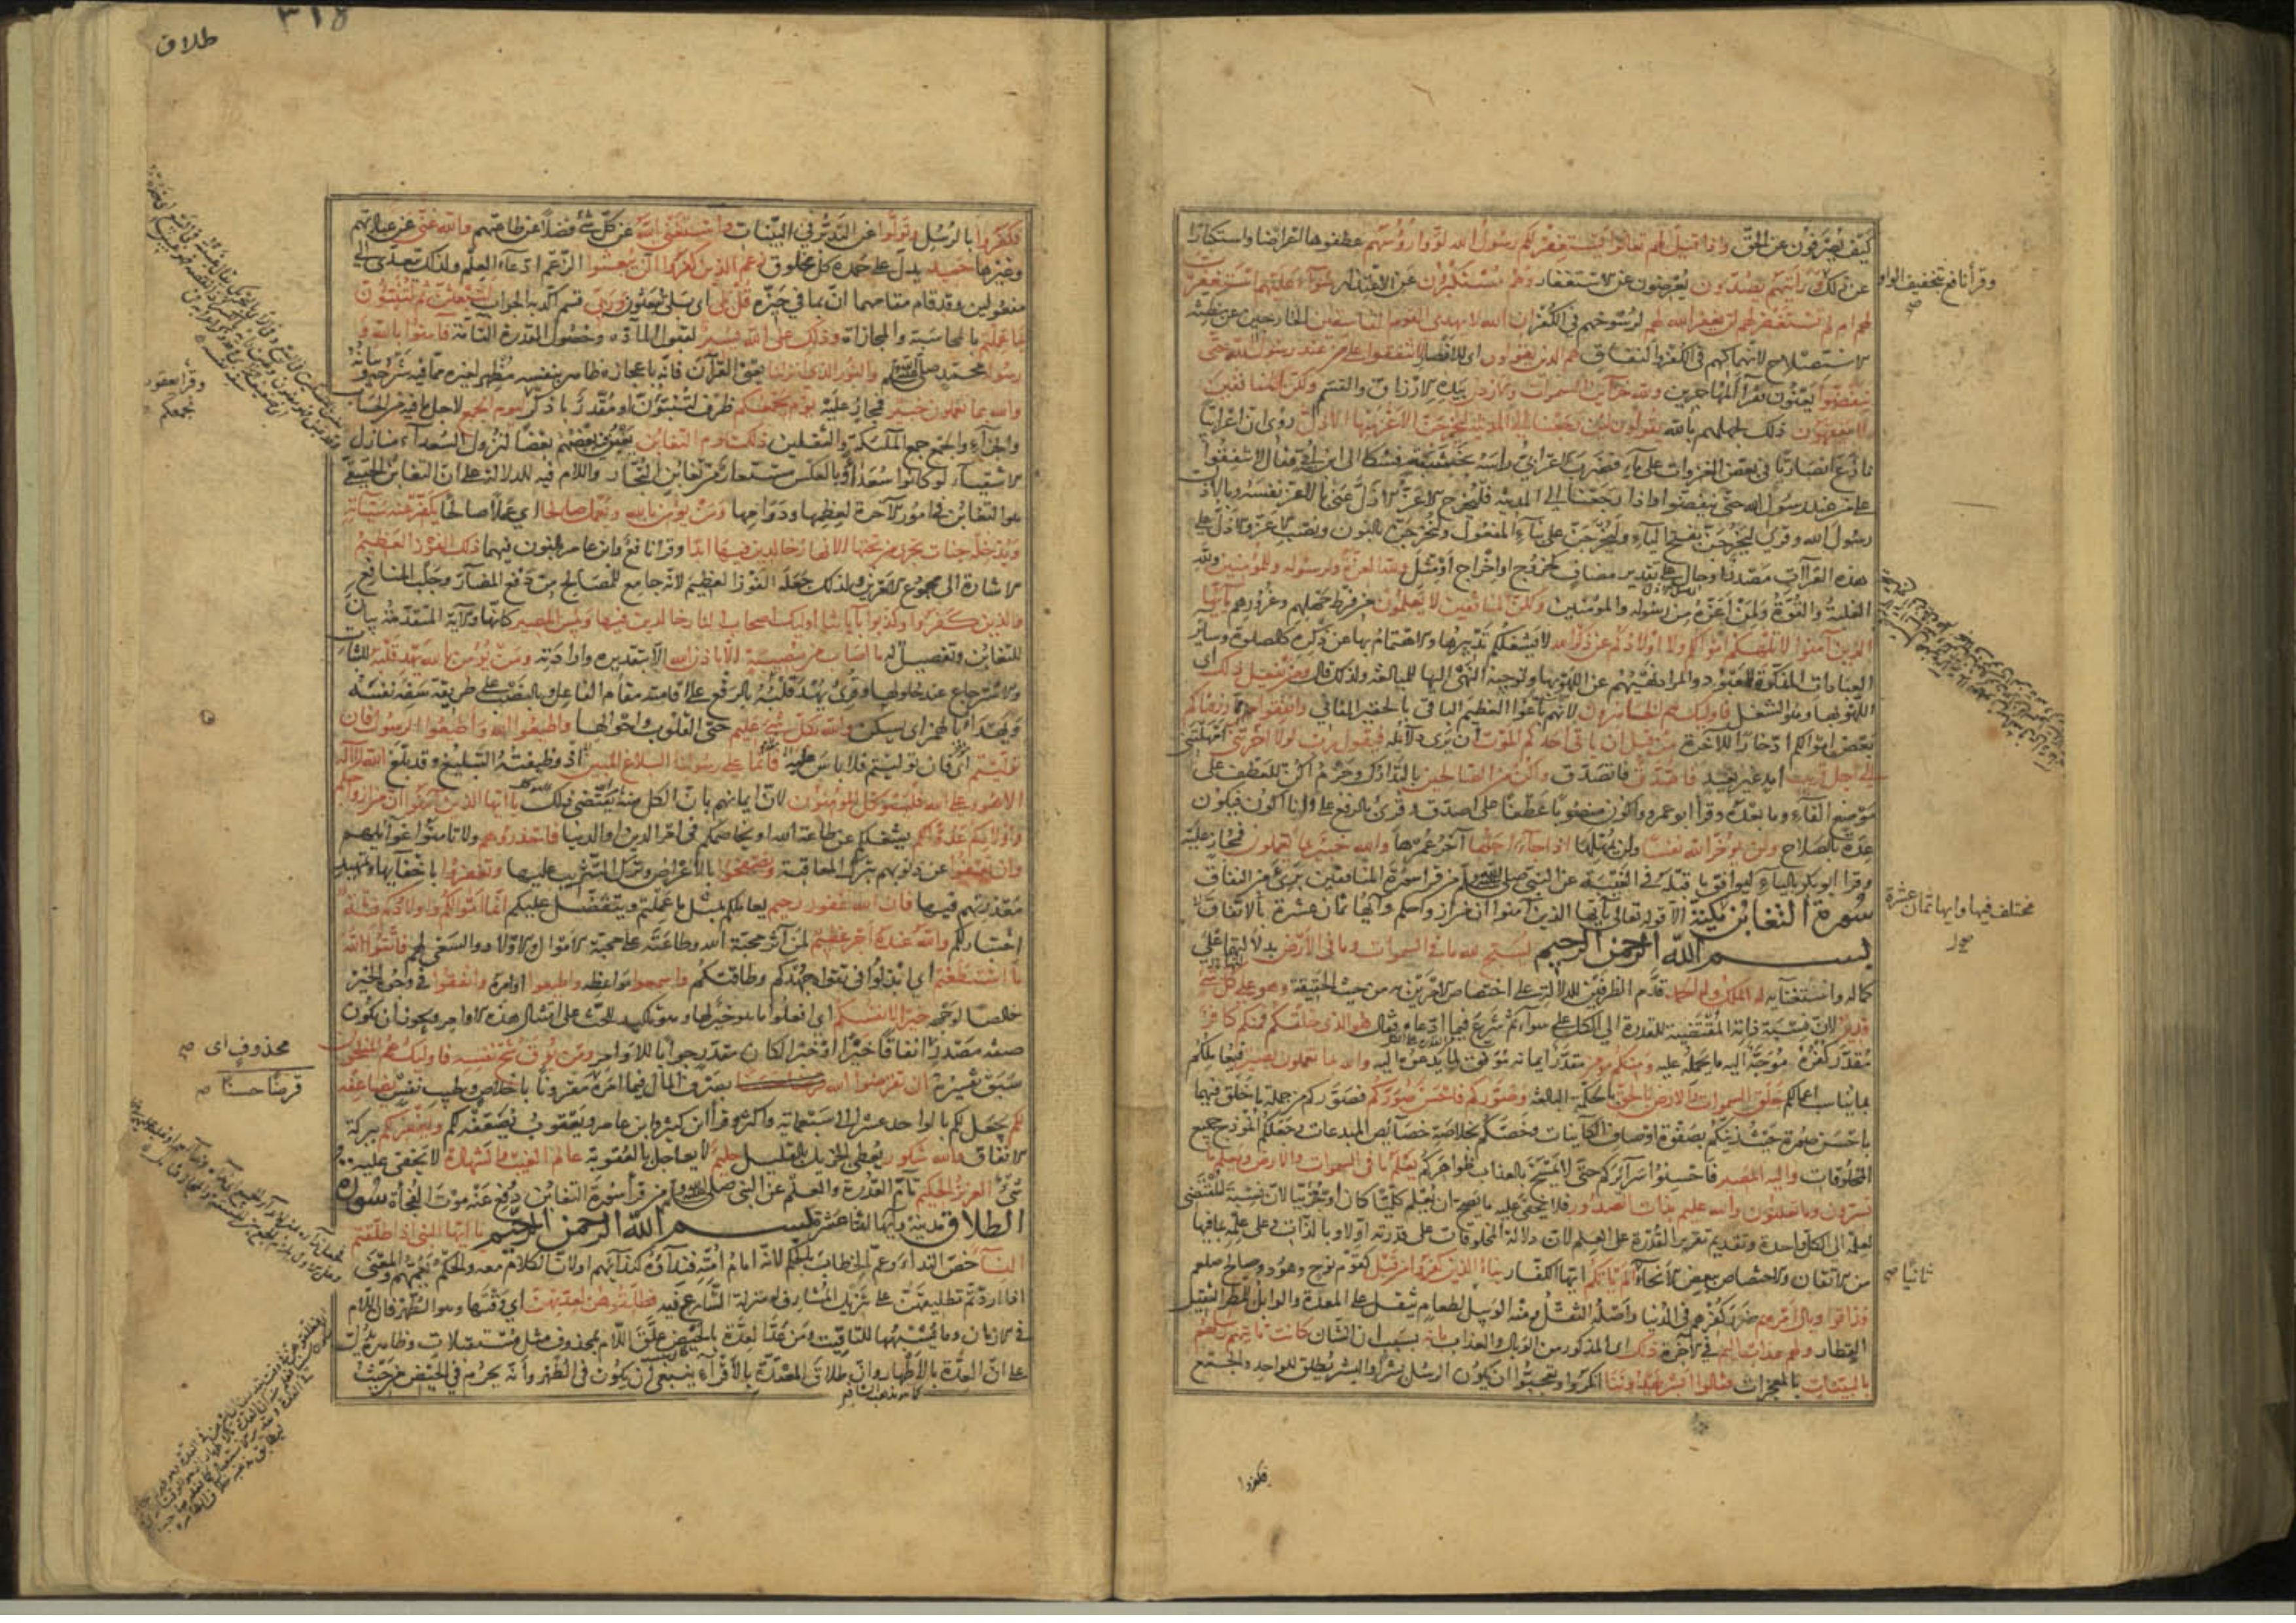 كيف يصرفون عن الحق واذا قيل لهم تعالوا يستغفر لكم رسول الله لووا رؤسهم عطفوها اعراضا واستكبارا
عن ذلك ورأيتهم يصدون يعرضون عن الاستغفار وهم مستكبرون عن الاعتذار سواء عليهم استغفرت
لهم ام لم تستغفر لهم لن يغفر الله لهم لرسوخهم في الكفر ان الله لا يهدي القوم الفاسقين الخارجين عن مظنة
الاستصلاح لانهماكهم في الكفر والنفاق هم الذين يقولون اي للانصار لا تنفقوا على من عند رسول الله حتى
ينفضوا يعنون فقراء المهاجرين ولله خزائن السموات والارض بيده الارزاق والقسم ولكن المنافقين
لا يفقهون ذلك لجهلهم بالله يقولون لئن رجعنا الى المدينة ليخرجن الاعز منها الاذل روي ان اعرابيا
نازع انصاريا في بعض الغزوات على ماء فضرب الاعرابي رأسه بخشبة فشكا الى ابن ابي فقال لا تنفقوا
على من عند رسول الله حتى ينفضوا واذا رجعنا الى المدينة فليخرج الاعز الاذل عنى بالاعز نفسه وبالاذل
رسول الله وقرئ ليخرجن بفتح الياء وليخرجن على بناء المفعول ولنخرجن بالنون ونصب الاعز والاذل على
هذه القراآت مصدر او حال على تقدير مضاف كخروج او اخراج او مثل ولله العزة ولرسوله وللمؤمنين ولله
الغلبة والقوة ولمن اعزه من رسوله والمؤمنين ولكن المنافقين لا يعلمون من فرط جهلهم وغرورهم يا ايها
الذين آمنوا لا تلهكم اموالكم ولا اولادكم عن ذكر الله لا يشغلكم تدبيرها والاهتمام بها عن ذكره كالصلوة وسائر
العبادات المذكرة للمعبود والمراد نهيهم عن اللهو بها وتوجيه النهي اليها للمبالغة ولذلك قال ومن يفعل ذلك اي
اللهو بها وهو الشغل فاولئك هم الخاسرون لانهم باعوا العظيم الباقي بالحقير الفاني وانفقوا مما رزقناكم
بعض اموالكم ادخارا للآخرة من قبل ان ياتي احدكم الموت ان يرى دلائله فيقول رب لولا اخرتني امهلتني
الى اجل قريب امد غير بعيد فاصدق فاتصدق واكن من الصالحين بالتدارك وجزم اكن للعطف على
موضع الفاء وما بعده وقرأ ابو عمرو واكون منصوبا عطفا على اصدق وقرئ بالرفع على وانا اكون فيكون
عدة بالصلاح ولن يؤخر الله نفسا ولن يمهلها اذا جاء اجلها آخر عمرها والله خبير بما تعملون فمجاز عليه
وقرأ ابو بكر بالياء ليوافق ما قبله في الغيبة عن النبي صلى الله عليه وسلم من قرأ سورة المنافقين برئ من النفاق
سورة التغابن مكية الا قوله تعالى يا ايها الذين آمنوا ان من ازواجكم وآيها ثمان عشرة بالاتفاق
بسم الله الرحمن الرحيم يسبح لله ما في السموات وما في الارض بدلالتها على
كماله واستغنائه له الملك وله الحمد قدم الظرفين للدلالة على اختصاص الامرين به من حيث الحقيقة وهو على كل شئ
قدير لان نسبة ذاته المقتضية للقدرة الى الكل على سواء ثم شرع فيما ادعاه فقال هو الذي خلقكم فمنكم كافر
مقدر كفره موجه اليه ما يحمله عليه ومنكم مؤمن مقدر ايمانه موفق لما يدعوه اليه والله بما تعملون بصير فيعاملكم
بما يناسب اعمالكم خلق السموات والارض بالحق بالحكمة البالغة وصوركم فاحسن صوركم فصوركم من جملة ما خلق فيهما
باحسن صورة حيث زينكم بصفوة اوصاف الكائنات وخصكم بخلاصة خصائص المبدعات وجعلكم انموذج جميع
المخلوقات واليه المصير فاحسنوا سرائركم حتى لا يمسخ بالعذاب ظواهركم يعلم ما في السموات والارض ويعلم ما
تسرون وما تعلنون والله عليم بذات الصدور فلا يخفى عليه ما يصح ان يعلم كليا كان او جزئيا لان نسبة المقتضي
لعلمه الى الكل واحدة وتقديم تقرير القدرة على العلم لان دلالة المخلوقات على قدرته اولا وبالذات وعلى علمه بما فيها
من الاتقان والاختصاص ببعض الانحاء الم ياتكم ايها الكفار نبأ الذين كفروا من قبل كقوم نوح وهود وصالح صلعم
فذاقوا وبال امرهم ضرر كفرهم في الدنيا واصله الثقل ومنه الوبيل لطعام يثقل على المعدة والوابل للمطر الثقيل
القطار ولهم عذاب اليم في الآخرة ذلك اي المذكور من الوبال والعذاب بانه بسبب ان الشان كانت تاتيهم رسلهم
بالبينات بالمعجزات فقالوا ابشر يهدوننا انكروا وتعجبوا ان يكون الرسل بشرا والبشر يطلق للواحد والجمع
فكفروا
وقرأ نافع بتخفيف الواو
صح
مختلف فيها وايها ثمان عشرة
صح
ثانيا صح
٣١٨
طلاق
فكفروا بالرسل وتولوا عن التدبر في البينات واستغنى الله عن كل شئ فضلا عن طاعتهم والله غني عن عبادتهم
وغيرها حميد يدل على حمده كل مخلوق زعم الذين كفروا ان لن يبعثوا الزعم ادعاء العلم ولذلك تعدى الى
مفعولين وقد قام مقامهما ان بما في حيزه قل بلى اي بلى تبعثون وربي قسم اكد به الجواب لتبعثن ثم لتنبؤن
بما عملتم بالمحاسبة والمجازاة وذلك على الله يسير لقبول المادة وحصول القدرة التامة فآمنوا بالله و
رسوله محمد صلى الله عليه وسلم والنور الذي انزلنا يعني القرآن فانه باعجازه ظاهر بنفسه مظهر لغيره مما فيه شرحه وبيانه
والله بما تعملون خبير فمجاز عليه يوم يجمعكم ظرف لتنبؤن او مقدر باذكر ليوم الجمع لاجل ما فيه من الحساب
والجزاء والجمع جمع الملائكة والثقلين ذلك يوم التغابن يغبن بعضهم بعضا لنزول السعداء منازل
الاشقياء لو كانوا سعداء وبالعكس مستعار من تغابن التجار واللام فيه للدلالة على ان التغابن الحقيقي
هو التغابن في امور الآخرة لعظمها ودوامها ومن يؤمن بالله ويعمل صالحا اي عملا صالحا يكفر عنه سيآته
ويدخله جنات تجري من تحتها الانهار خالدين فيها ابدا وقرأ نافع وابن عامر بالنون فيهما ذلك الفوز العظيم
الاشارة الى مجموع الامرين ولذلك جعله الفوز العظيم لانه جامع للمصالح من دفع المضار وجلب المنافع
والذين كفروا وكذبوا بآياتنا اولئك اصحاب النار خالدين فيها وبئس المصير كانها والآية المتقدمة بيان
للتغابن وتفصيل له ما اصاب من مصيبة الا باذن الله الا بتقديره وارادته ومن يؤمن بالله يهد قلبه للثبات
والاسترجاع عند حلولها وقرئ يهد قلبه بالرفع على اقامته مقام الفاعل وبالنصب على طريقة سفه نفسه
ويهدأ بالهمز اي يسكن والله بكل شئ عليم حتى القلوب واحوالها واطيعوا الله واطيعوا الرسول فان
توليتم اي فان توليتم فلا باس عليه فانما على رسولنا البلاغ المبين اذ وظيفته التبليغ وقد بلغ الله لا اله
الا هو وعلى الله فليتوكل المؤمنون لان ايمانهم بان الكل منه يقتضي ذلك يا ايها الذين آمنوا ان من ازواجكم
واولادكم عدوا لكم يشغلكم عن طاعة الله او يخاصمكم في امر الدين او الدنيا فاحذروهم ولا تامنوا غوائلهم
وان تعفوا عن ذنوبهم بترك المعاقبة وتصفحوا بالاعراض وترك التثريب عليها وتغفروا باخفائها وتمهيد
معذرتهم فيها فان الله غفور رحيم يعاملكم بمثل ما عملتم ويتفضل عليكم انما اموالكم واولادكم فتنة
اختبار لكم والله عنده اجر عظيم لمن آثر محبة الله وطاعته على محبة الاموال والاولاد والسعي لهم فاتقوا الله
ما استطعتم اي ابذلوا في تقواه جهدكم وطاقتكم واسمعوا مواعظه واطيعوا اوامره وانفقوا في وجوه الخير
خالصا لوجهه خيرا لانفسكم اي افعلوا ما هو خير لها وهو تاكيد للحث على امتثال هذه الاوامر ويجوز ان يكون
صفة مصدر انفاقا خيرا او خبرا لكان مقدر جوابا للاوامر ومن يوق شح نفسه فاولئك هم المفلحون
سبق تفسيره ان تقرضوا الله بصرف المال فيما امره مقرونا باخلاص وطيب نفس يضاعفه
لكم يجعل لكم بالواحد عشرا الى سبعمائة واكثر وقرأ ابن كثير وابن عامر ويعقوب يضعفه لكم ويغفر لكم ببركة
الانفاق والله شكور يعطي الجزيل بالقليل حليم لا يعاجل بالعقوبة عالم الغيب والشهادة لا يخفى عليه
شئ العزيز الحكيم تام القدرة والعلم عن النبي صلى الله عليه وسلم من قرأ سورة التغابن دفع عنه موت الفجأة سورة
الطلاق مدنية وآيها اثنتا عشرة بسم الله الرحمن الرحيم يا ايها النبي اذا طلقتم
النساء خص النداء وعم الخطاب بالحكم لانه امام امته فنداؤه كندائهم او لان الكلام معه والحكم يعمهم والمعنى
اذا اردتم تطليقهن على تنزيل المشارف له منزلة الشارع فيه فطلقوهن لعدتهن اي وقتها وهو الطهر فان اللام
في الازمان وما يشبهها للتاقيت ومن عد العدة بالحيض علق اللام بمحذوف مثل مستقبلات وظاهره يدل
على ان العدة بالاطهار وان طلاق المعتدة بالاقراء ينبغي ان يكون في الطهر وانه يحرم في الحيض من حيث
كما هو مذهب الشافعي
وقرأ يعقوب
نجمعكم
محذوف اي صح
قرضا حسنا صح